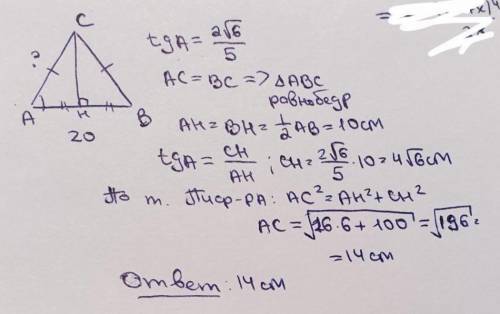 C
?
A H B
20
tgA = 2√6/5
AC = BC => △ABC
равнобедр
AH = BH = 1/2 AB = 10 см
tgA = CH/AH ; CH = 2√6/5 · 10 = 4√6 см
По т. Пиф-ра: AC² = AH² + CH²
AC = √(16·6 + 100) = √196 =
= 14 см
Ответ: 14 см